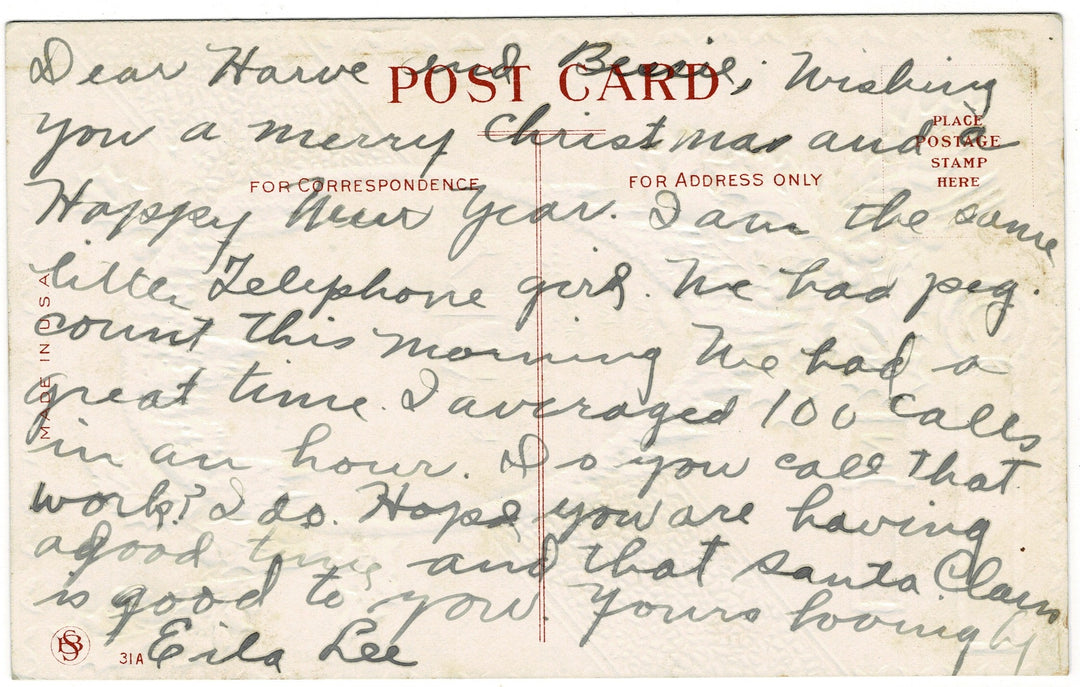 Dear Harve and Bessie, Wishing
POST CARD
you a merry Christmas and a
PLACE
POSTAGE
STAMP
HERE
FOR CORRESPONDENCE
FOR ADDRESS ONLY
Happy New Year. I am the same
little Telephone girl. We had peg.
count this morning We had a
great time. I averaged 100 calls
in an hour. Do you call that
work? I do. Hope you are having
a good time and that Santa Claus
is good to you. Yours lovingly
Eila Lee
MADE IN U.S.A.
31A